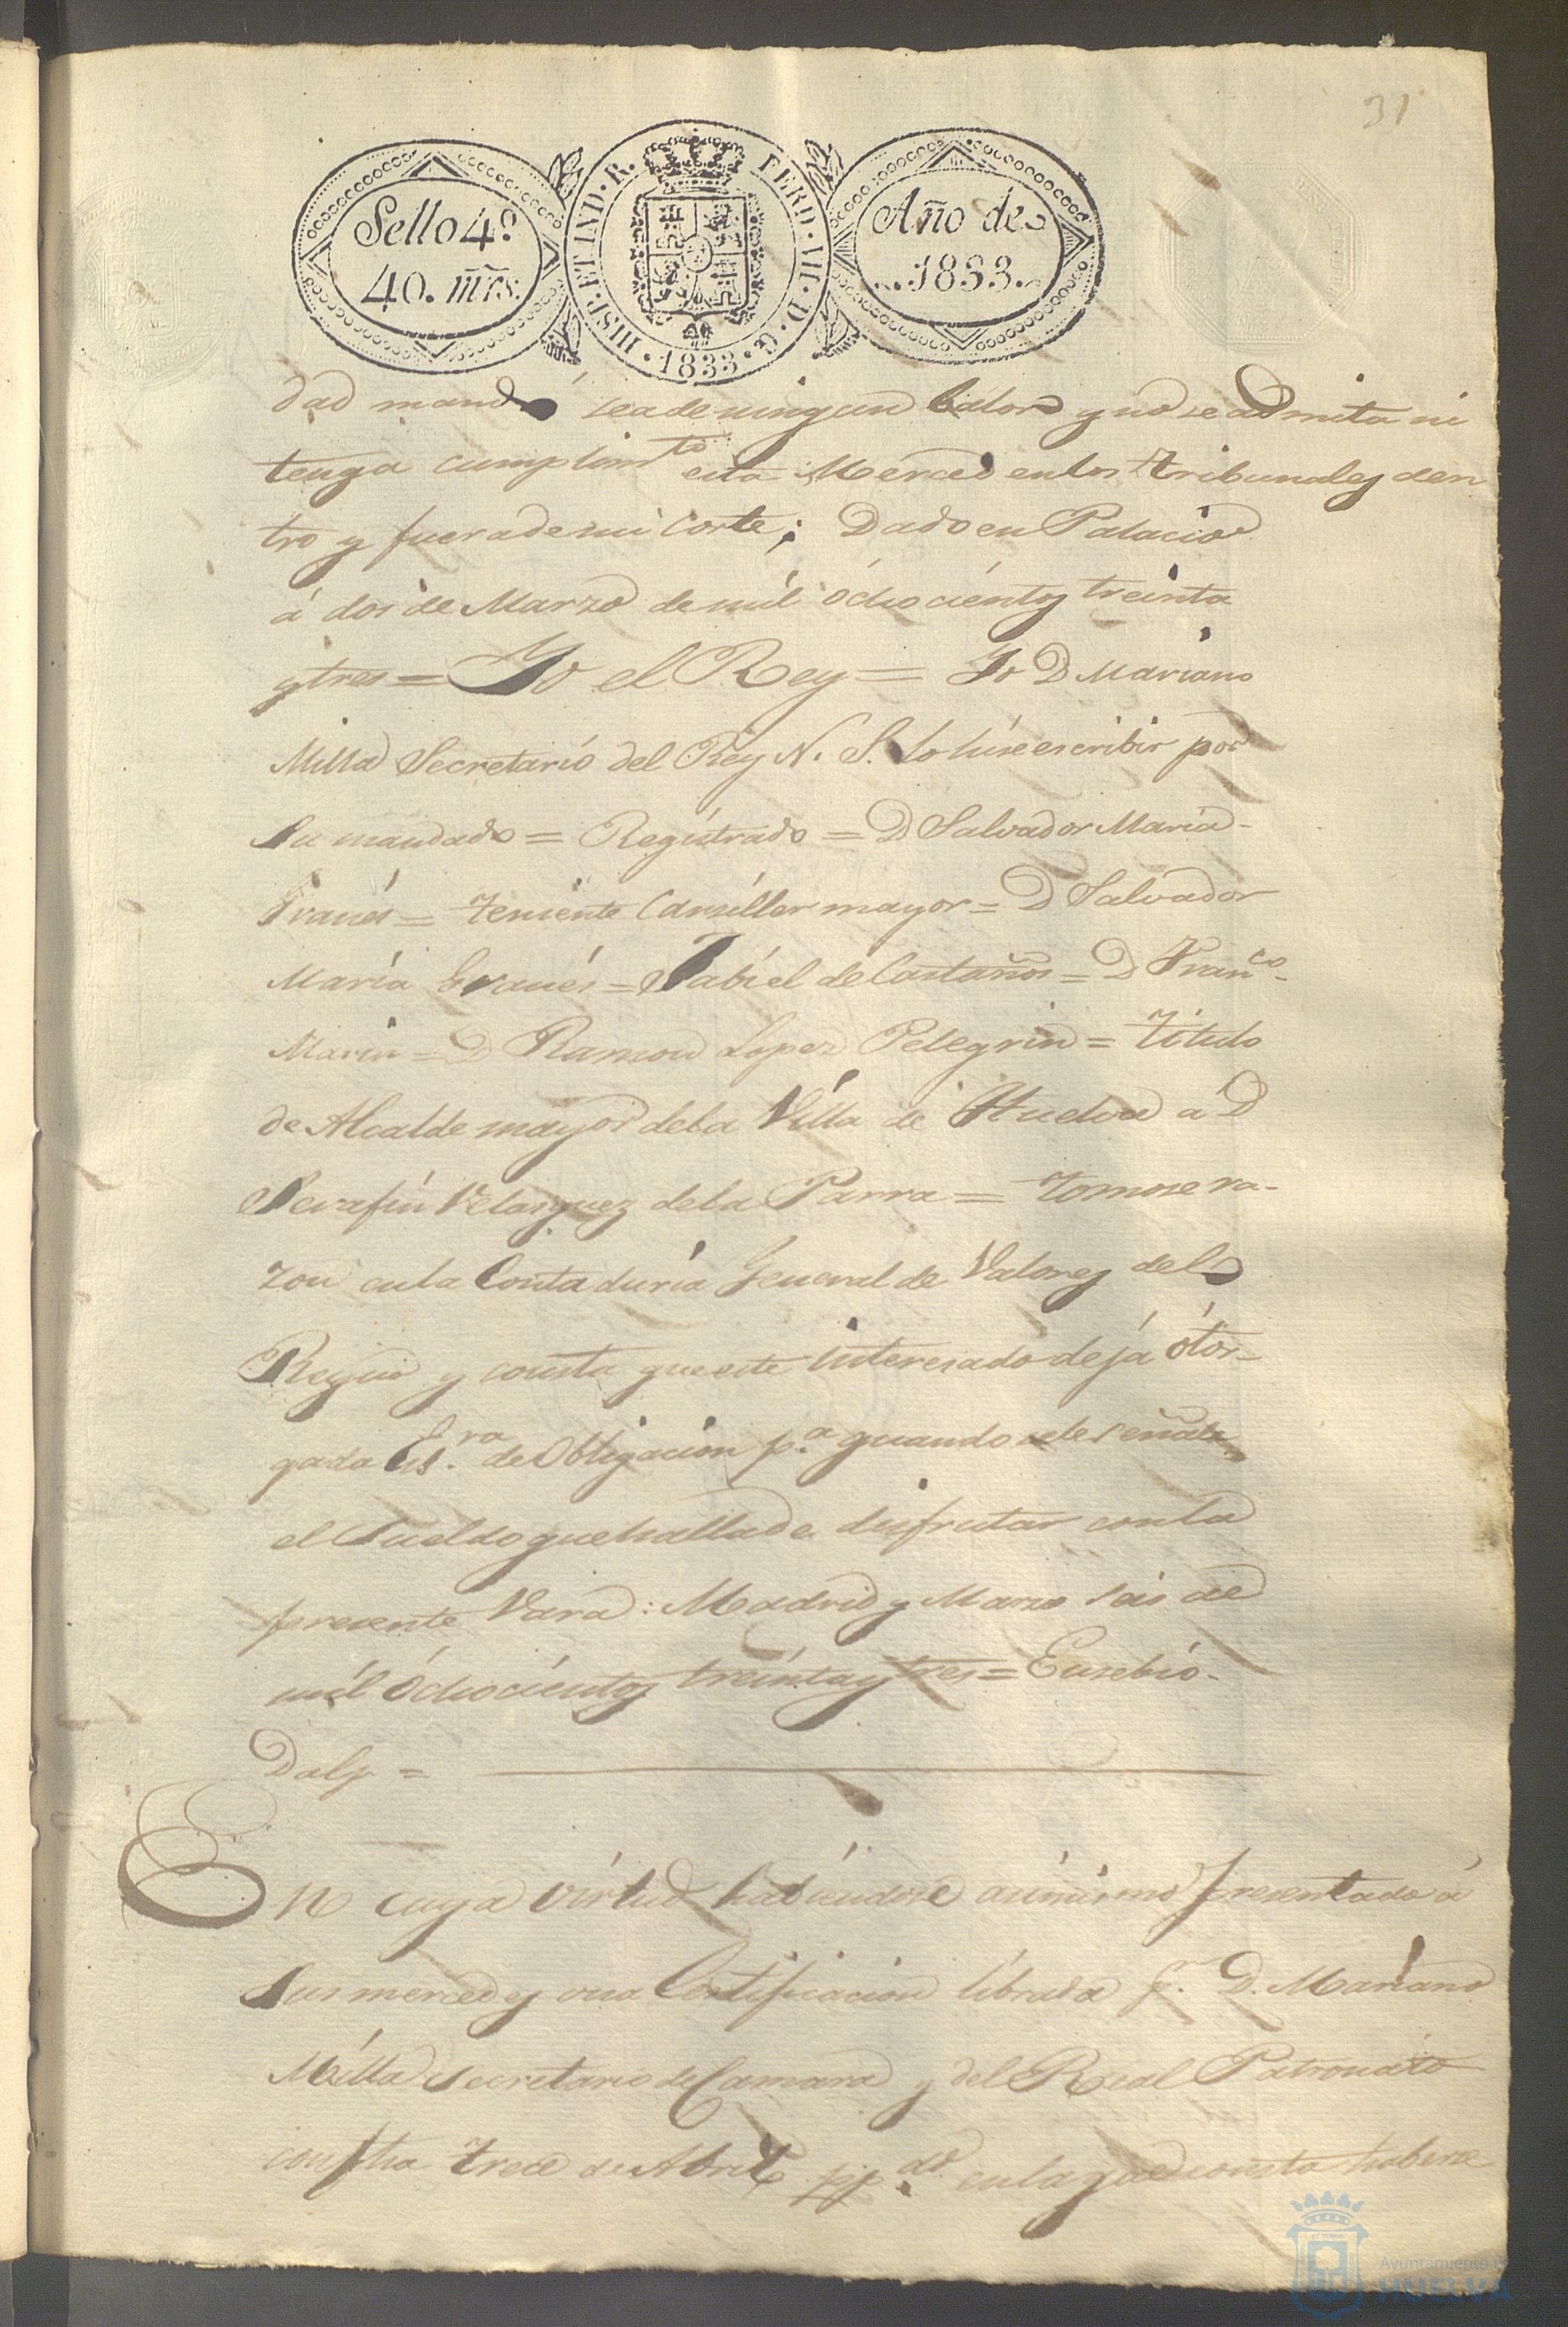 31
Sello 4º
40. mrs.
HISP. ET IND. R. FERD. VII. D. G. 1833
Año de
1833.
dad mando sea de ningun balor y no se admita ni
tenga cumplimto esta Merced en los Tribunales den
tro y fuera de mi Corte; Dado en Palacio
á dos de Marzo de mil ochocientos treinta
y tres = Yo el Rey = Yo D Mariano
Milla Secretario del Rey N. S. lo hise escribir por
Su mandado = Registrado = D Salvador Maria
Granés = Teniente Cansiller mayor = D Salvador
María Granés = Fabiel de Castaños = D Franco
Marin = D Ramon Lopez Pelegrin = Titulo
de Alcalde mayor de la Villa de Huelva a D
Serafin Velasquez de la Parra = tomose ra-
zon en la Contaduria General de Valores del
Reyno y consta que este interesado deja otor-
gada Es.ra de Obligacion p.a quando se le señale
el Sueldo que halla de disfrutar con la
presente Vara: Madrid y Marzo seis de
mil ochocientos treinta y tres = Eusebio
Dalp =
En cuya virtud habiendose asimismo presentado á
Sus mercedes una Certificacion librada p.r D. Mariano
Milla Secretario de Camara y del Real Patronato
con fha trece de Abril pp.do en la que consta haberse
Ayuntamiento de
HUELVA